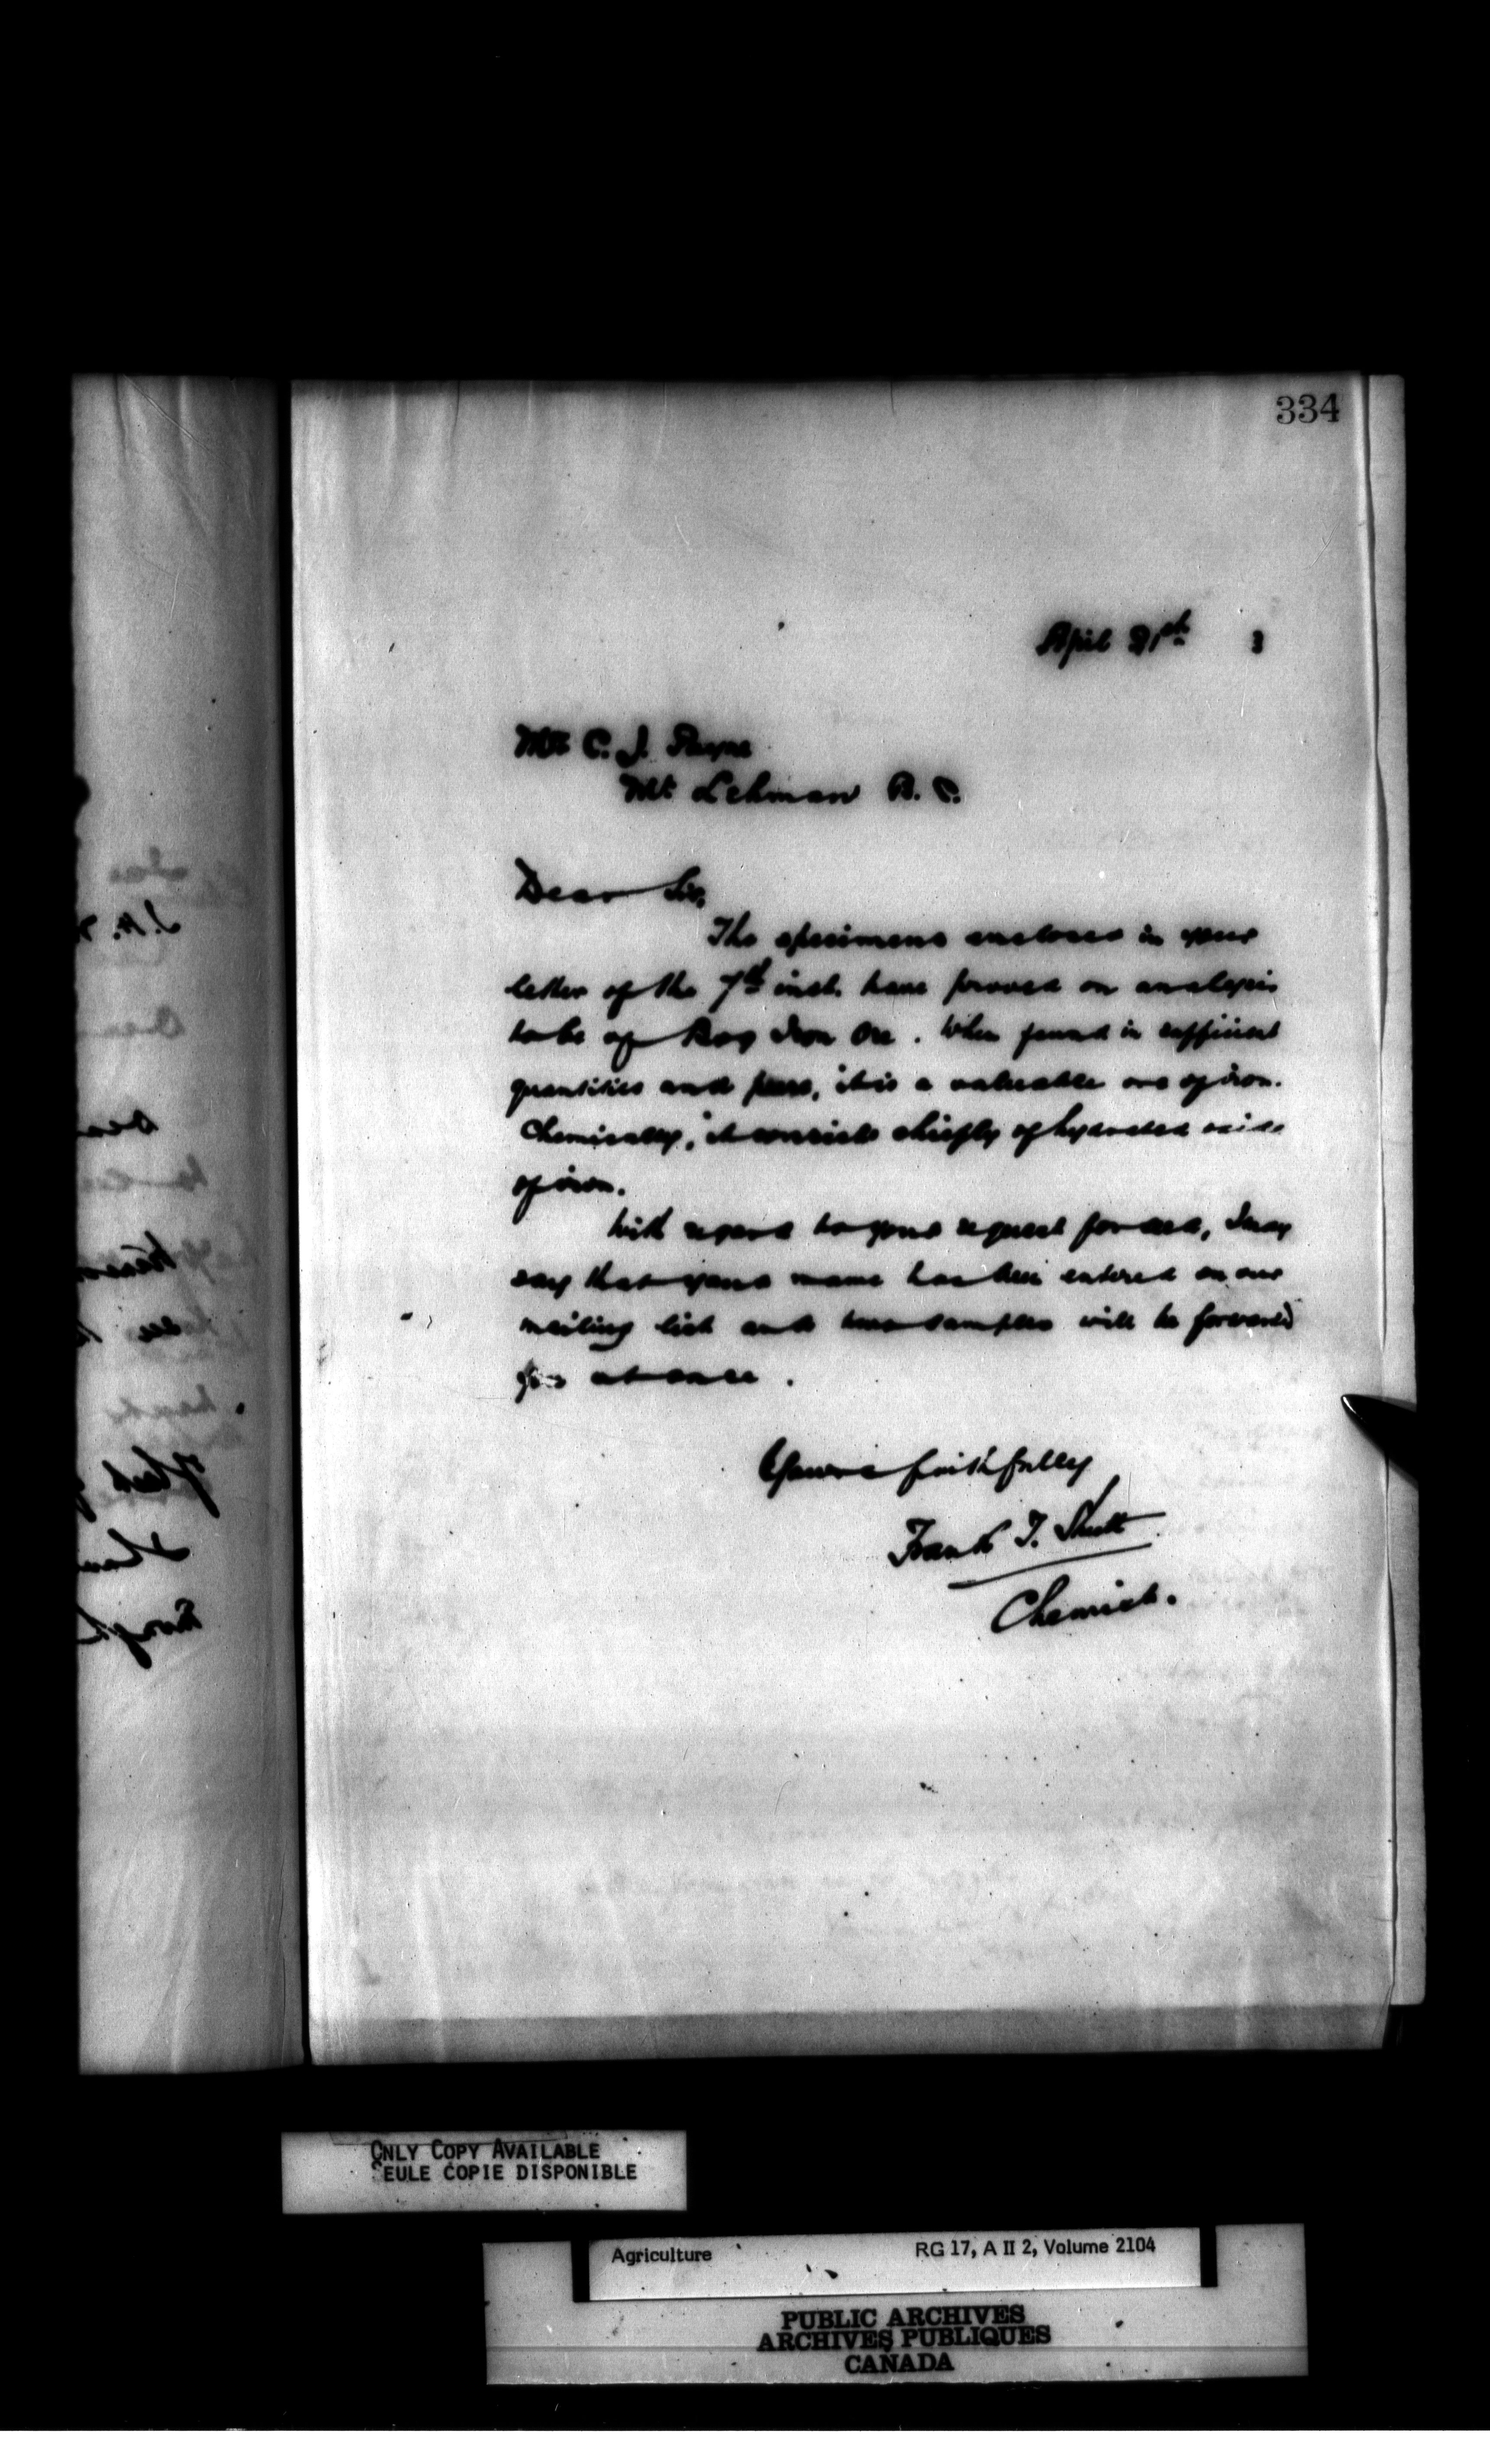 334
April 21st 3
Mr C. J. Payne
Mt Lehman B. C.
Dear Sir,
The specimens enclosed in your
letter of the 7th inst. have proved on analysis
to be of Bog Iron Ore. When found in sufficient
quantities and pure, it is a valuable ore of iron.
Chemically, it consists chiefly of hydrated oxide
of iron.
With regard to your request for seed, I may
say that your name has been entered on our
mailing list and two samples will be forwarded
you at once.
Yours faithfully
Frank T. Shutt
Chemist.
ONLY COPY AVAILABLE
SEULE COPIE DISPONIBLE
Agriculture RG 17, A II 2, Volume 2104
PUBLIC ARCHIVES
ARCHIVES PUBLIQUES
CANADA